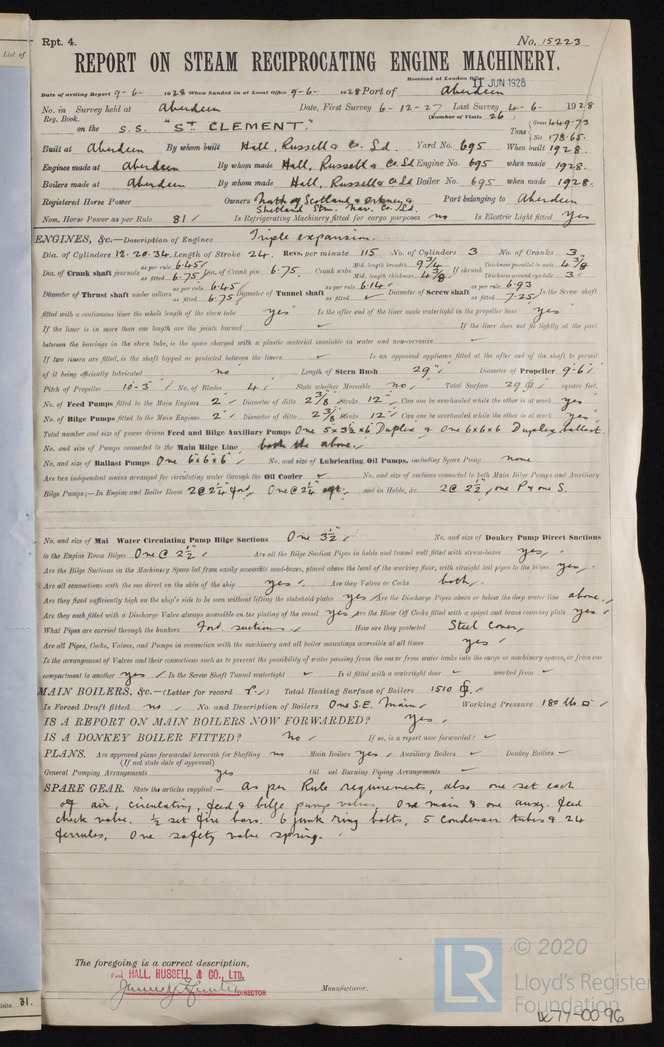 List of
Rpt. 4.
No. 15223
REPORT ON STEAM RECIPROCATING ENGINE MACHINERY.
Received at London Office 11 JUN 1928
Date of writing Report 9-6-1928 When handed in at Local Office 9-6-1928 Port of Aberdeen
No. in Survey held at Aberdeen Date, First Survey 6-12-27 Last Survey 4-6-1928
Reg. Book. (Number of Visits 26)
on the S.S. "ST CLEMENT." Tons { Gross 449.73
Net 178.65.
Built at Aberdeen By whom built Hall, Russell & Co. Ld. Yard No. 695 When built 1928.
Engines made at Aberdeen By whom made Hall, Russell & Co. Ld Engine No. 695 when made 1928.
Boilers made at Aberdeen By whom made Hall, Russell & Co Ld Boiler No. 695 when made 1928.
Registered Horse Power Owners North of Scotland & Orkney & Shetland Stm. Nav. Co. Ld. Port belonging to Aberdeen
Nom. Horse Power as per Rule 81 Is Refrigerating Machinery fitted for cargo purposes no Is Electric Light fitted Yes
ENGINES, &c.—Description of Engines Triple expansion.
Dia. of Cylinders 12. 20. 34. Length of Stroke 24. Revs. per minute 115 No. of Cylinders 3 No. of Cranks 3
Dia. of Crank shaft journals as per rule 6.45 as fitted 6.75 Dia. of Crank pin 6.75 Crank webs Mid. length breadth 9 3/4 Mid. length thickness 4 3/8 If shrunk Thickness parallel to axis 4 3/8 Thickness around eye hole 3
Diameter of Thrust shaft under collars as per rule 6.45 as fitted 6.75 Diameter of Tunnel shaft as per rule 6.14 as fitted ✓ Diameter of Screw shaft as per rule 6.93 as fitted 7.25 Is the Screw shaft
fitted with a continuous liner the whole length of the stern tube yes Is the after end of the liner made watertight in the propeller boss yes
If the liner is in more than one length are the joints burned ✓ If the liner does not fit tightly at the part
between the bearings in the stern tube, is the space charged with a plastic material insoluble in water and non-corrosive ✓
If two liners are fitted, is the shaft lapped or protected between the liners ✓ Is an approved appliance fitted at the after end of the shaft to permit
of it being efficiently lubricated no Length of Stern Bush 29" Diameter of Propeller 9-6"
Pitch of Propeller 10-3" No. of Blades 4 State whether Moveable no Total Surface 29 square feet.
No. of Feed Pumps fitted to the Main Engines 2 Diameter of ditto 2 3/8 Stroke 12" Can one be overhauled while the other is at work yes
No. of Bilge Pumps fitted to the Main Engines 2 Diameter of ditto 2 3/8 Stroke 12" Can one be overhauled while the other is at work yes
Total number and size of power driven Feed and Bilge Auxiliary Pumps One 5x3½x6 Duplex & One 6x6x6 Duplex ballast.
No. and size of Pumps connected to the Main Bilge Line both the above
No. and size of Ballast Pumps One 6x6x6 No. and size of Lubricating Oil Pumps, including Spare Pump none
Are two independent means arranged for circulating water through the Oil Cooler ✓ No. and size of suctions connected to both Main Bilge Pumps and Auxiliary
Bilge Pumps;—In Engine and Boiler Room 2 @ 2¼" ford. One @ 2¼" aft. and in Holds, &c. 2 @ 2½", one P & one S.
No. and size of Main Water Circulating Pump Bilge Suctions One 3½" No. and size of Donkey Pump Direct Suctions
to the Engine Room Bilges One @ 2½" Are all the Bilge Suction Pipes in holds and tunnel well fitted with strum-boxes yes
Are the Bilge Suctions in the Machinery Space led from easily accessible mud-boxes, placed above the level of the working floor, with straight tail pipes to the bilges yes
Are all connections with the sea direct on the skin of the ship yes Are they Valves or Cocks both
Are they fixed sufficiently high on the ship's side to be seen without lifting the stokehold plates yes Are the Discharge Pipes above or below the deep water line above
Are they each fitted with a Discharge Valve always accessible on the plating of the vessel yes Are the Blow Off Cocks fitted with a spigot and brass covering plate yes
What Pipes are carried through the bunkers Ford. suctions How are they protected Steel cover
Are all Pipes, Cocks, Valves, and Pumps in connection with the machinery and all boiler mountings accessible at all times yes
Is the arrangement of Valves and their connections such as to prevent the possibility of water passing from the sea or from water tanks into the cargo or machinery spaces, or from one
compartment to another yes Is the Screw Shaft Tunnel watertight ✓ Is it fitted with a watertight door ✓ worked from ✓
MAIN BOILERS, &c.—(Letter for record r) Total Heating Surface of Boilers 1510
Is Forced Draft fitted no No. and Description of Boilers One S.E. Main Working Pressure 180 lb
IS A REPORT ON MAIN BOILERS NOW FORWARDED? Yes
IS A DONKEY BOILER FITTED? No If so, is a report now forwarded? ✓
PLANS. Are approved plans forwarded herewith for Shafting no Main Boilers yes Auxiliary Boilers ✓ Donkey Boilers ✓
(If not state date of approval)
General Pumping Arrangements yes Oil fuel Burning Piping Arrangements ✓
SPARE GEAR. State the articles supplied:— As per Rule requirements, also one set each
of air, circulating, feed & bilge pump valves, One main & one auxy. feed
check valve. ½ set fire bars. 6 junk ring bolts, 5 condenser tubes & 24
ferrules, One safety valve spring.
The foregoing is a correct description,
For HALL, RUSSELL & CO., LTD.
DIRECTOR Manufacturer.
31.
LR © 2020
Lloyd's Register
Foundation
LR77-0096